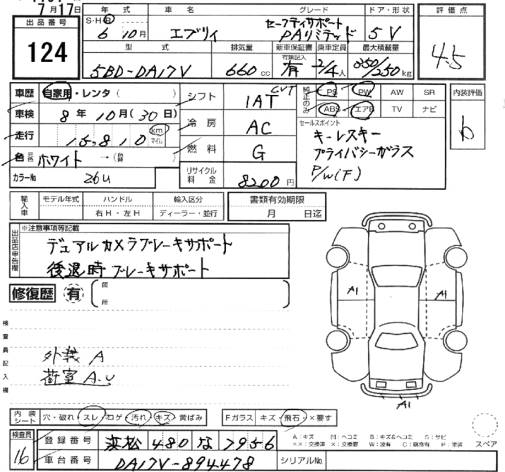 7月17日
出品番号
124
年式
車名
グレード
ドア・形状
S・H・R
6 10月
エブリイ
セーフティサポート
PAリミテッド
5V
型式
排気量
新車保証書
乗車定員
最大積載量
5BD-DA17V
660cc
保証記入
有
2/4人
350/250kg
評価点
4.5
車歴 自家用・レンタ( )
車検 8年10月(30日)
走行 15,810 km マイル
色 ホワイト → ( )
カラーNo 26U
シフト
1AT
CVT
冷房
AC
燃料
G
リサイクル料金
8200円
純正のみ
PS PW AW SR
ABS エアB TV ナビ
セールスポイント
キーレスキー
プライバシーガラス
P/W(F)
内装評価
b
輸入車
モデル年式
ハンドル
右H・左H
輸入区分
ディーラー・並行
書類有効期限
月 日迄
出品店申告欄
※注意事項等記載
デュアルカメラブレーキサポート
後退時ブレーキサポート
修復歴 有
箇所
検査員記入欄
外装 A
荷室 A.U
A1
A1
内装シート
穴・破れ スレ コゲ 汚れ キズ 黄ばみ
Fガラス キズ・飛石・×要す
検査員
16
登録番号
浜松 480 な 7956
車台番号
DA17V-894478
シリアルNo
スペア